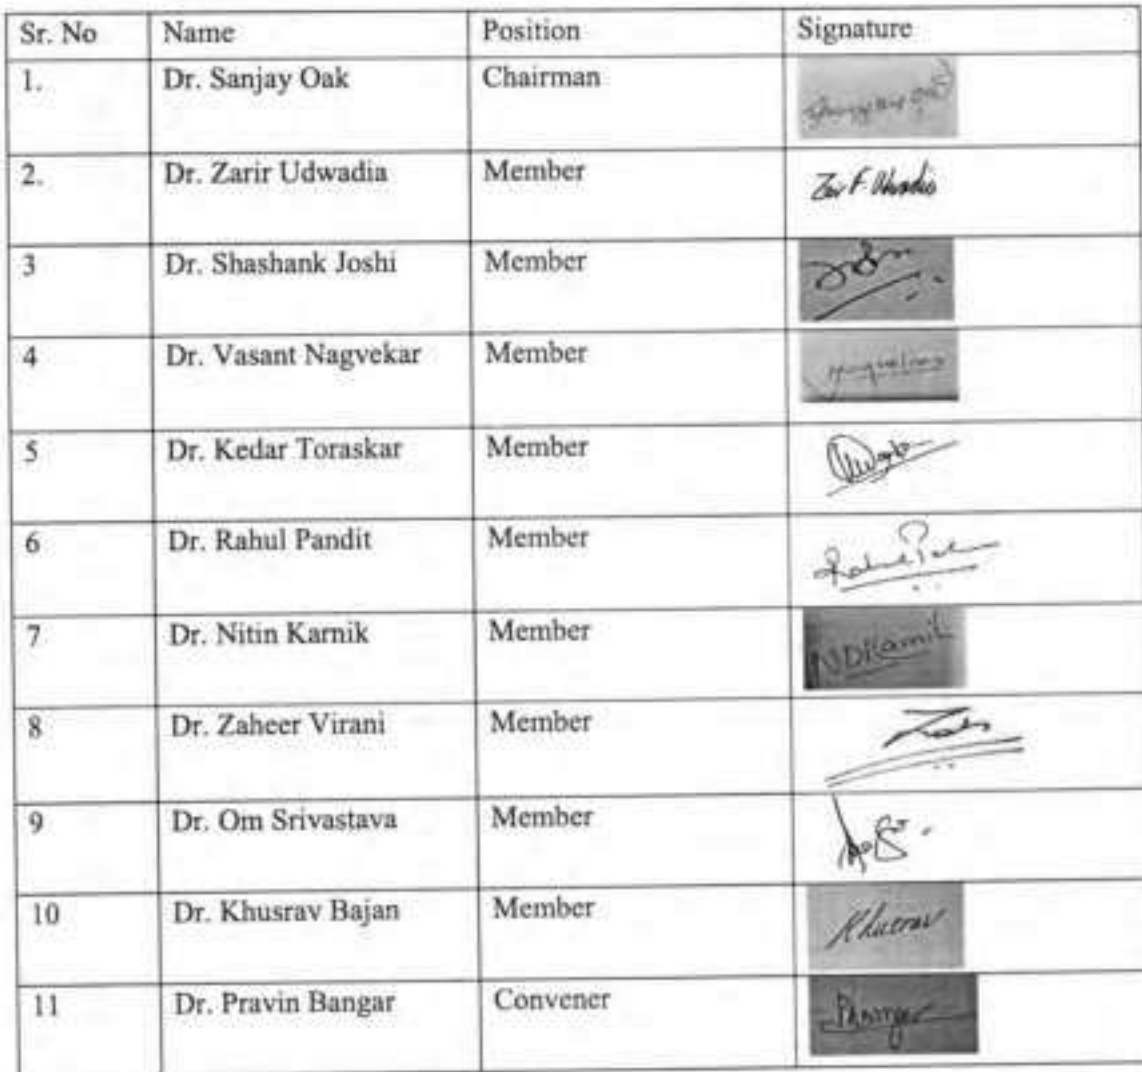 Sr. No Name Position Signature
1. Dr. Sanjay Oak Chairman
2. Dr. Zarir Udwadia Member
3 Dr. Shashank Joshi Member
4 Dr. Vasant Nagvekar Member
5 Dr. Kedar Toraskar Member
6 Dr. Rahul Pandit Member
7 Dr. Nitin Karnik Member NDKarnik
8 Dr. Zaheer Virani Member
9 Dr. Om Srivastava Member
10 Dr. Khusrav Bajan Member Khusrav
11 Dr. Pravin Bangar Convener